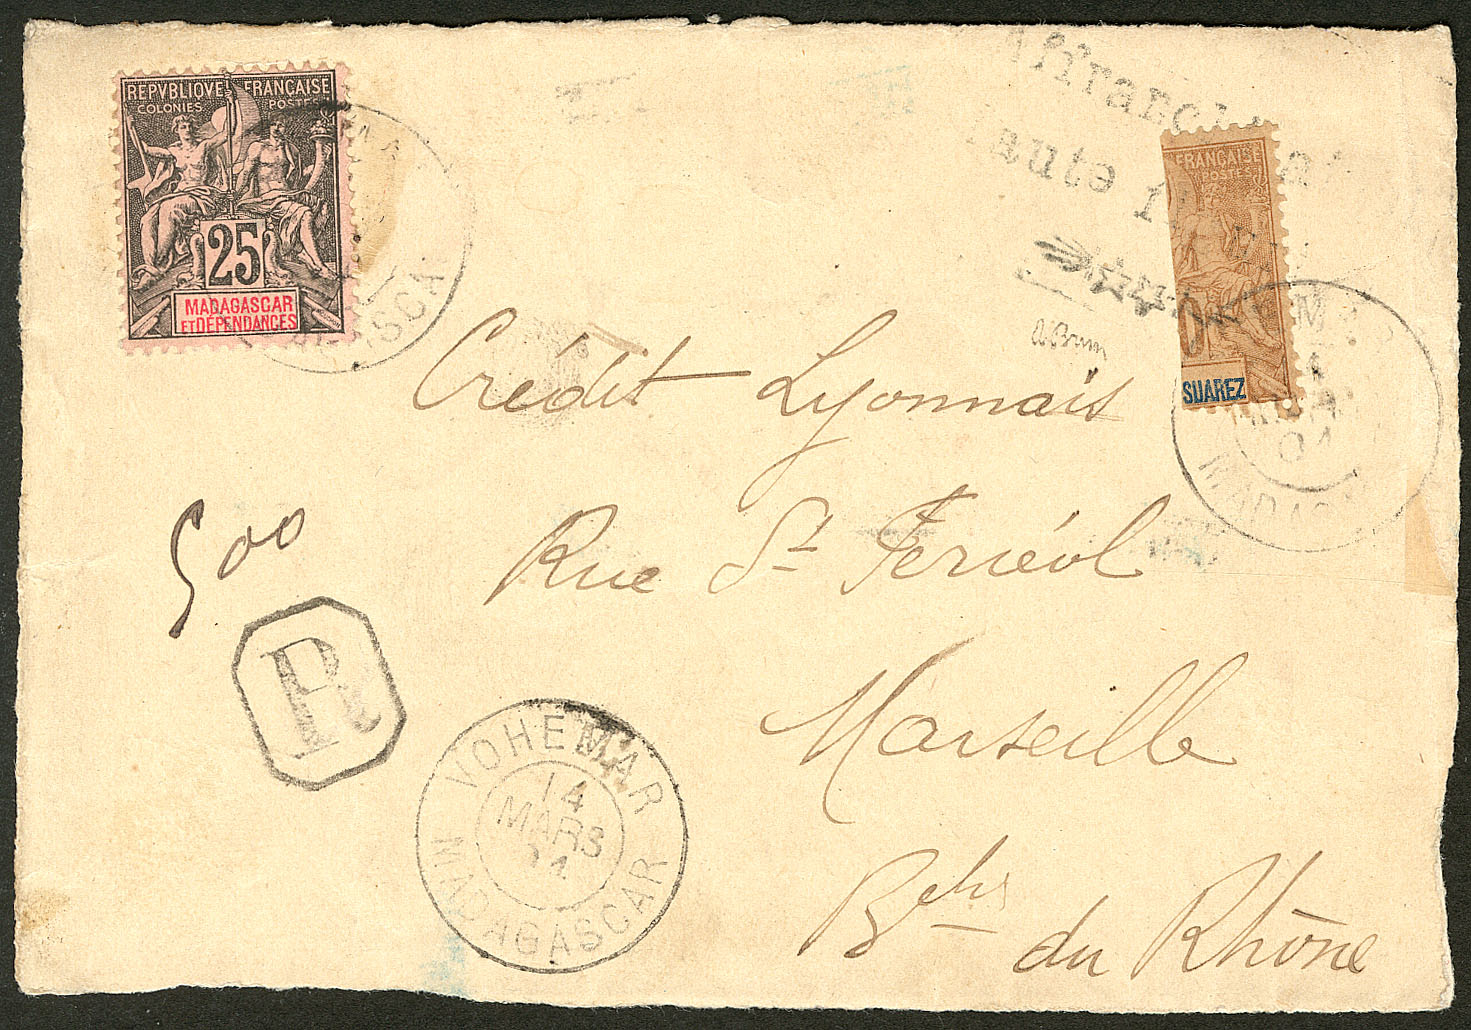 REPVBLIQVE FRANÇAISE
COLONIES POSTES
25
MADAGASCAR
ET DÉPENDANCES
FRANÇAISE
POSTES
SUAREZ
Crédit Lyonnais
Rue St Ferréol
Marseille
Bches du Rhône
500
R
VOHEMAR
14
MARS
04
MADAGASCAR